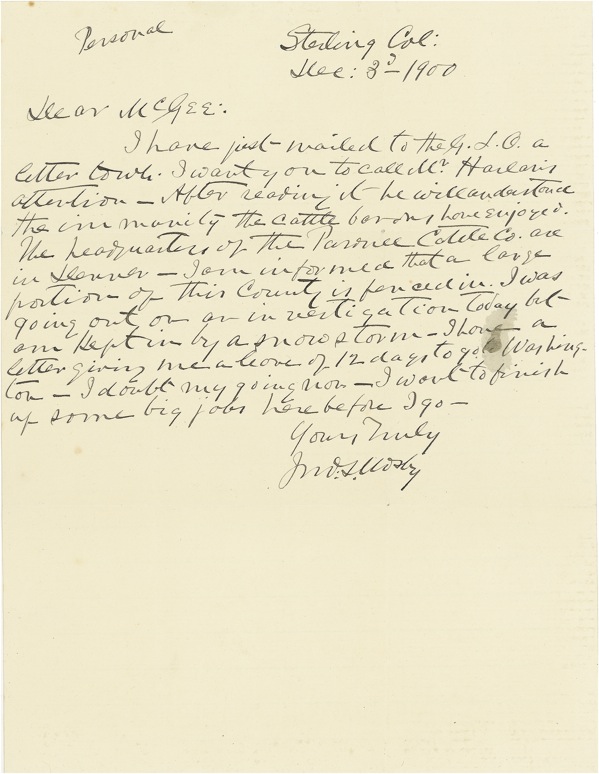 Personal
Sterling Col:
Dec: 3d - 1900
Dear McGee:
I have just mailed to the G. L. O. a
letter to wh. I want you to call Mr. Harlan's
attention — After reading it he will understand
the immunity the cattle barons have enjoyed.
The headquarters of the Pawnee Cattle Co. are
in Denver — I am informed that a large
portion of this County is fenced in. I was
going out on an investigation today but
am kept in by a snow storm — I have a
letter giving me a leave of 12 days to go to Washing-
ton — I doubt my going now — I want to finish
up some big jobs here before I go —
Yours Truly
Jno. S. Mosby